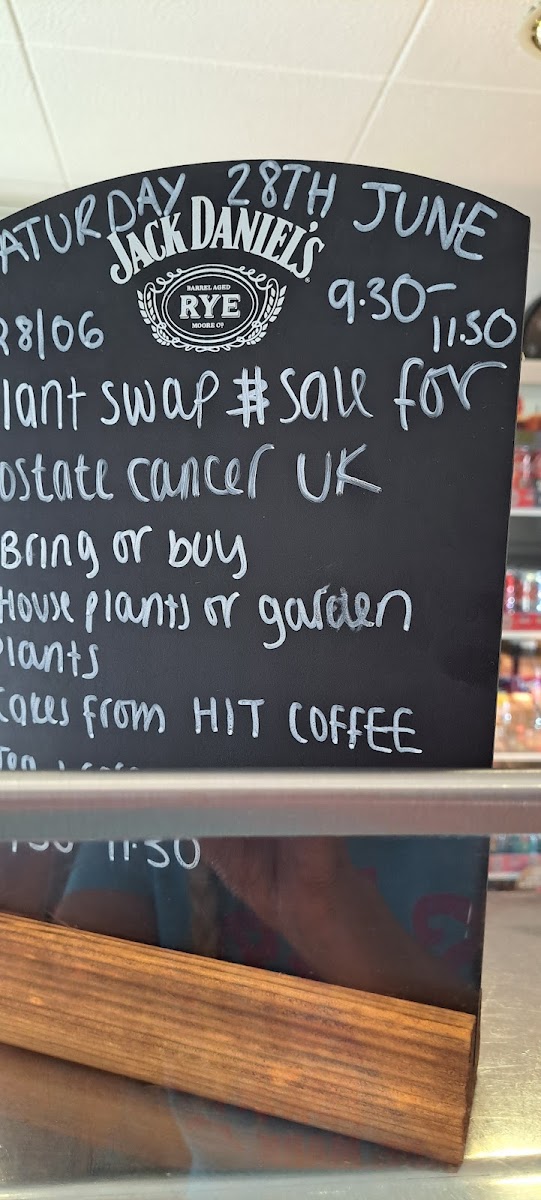 ATURDAY 28TH JUNE
JACK DANIEL'S
BARREL AGED
RYE
MOORE Cº
28/06
9.30-
11.30
lant swap & sale for
ostate cancer UK
Bring or buy
House plants or garden
plants
Cakes from HIT COFFEE
11.30